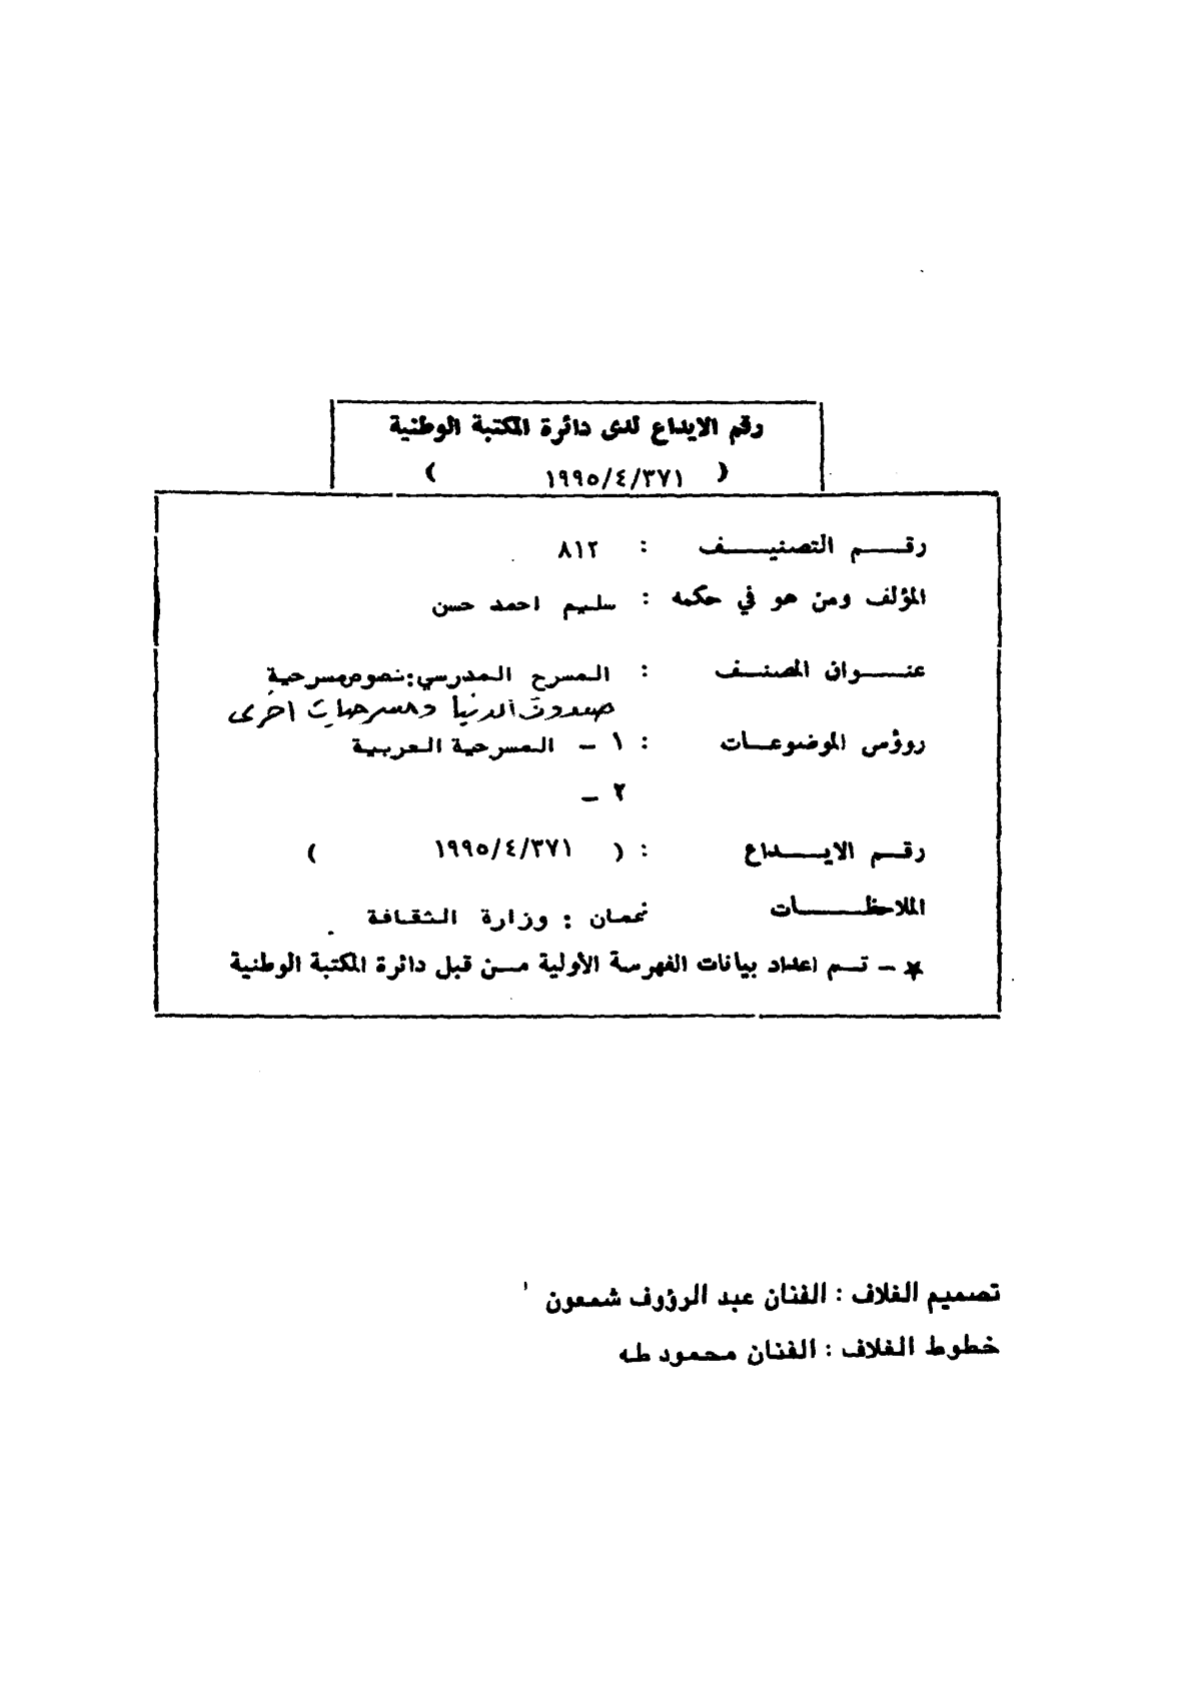 رقم الايداع لدى دائرة المكتبة الوطنية
( ١٩٩٥/٤/٣٧١ )
رقم التصنيف : ٨١٢
المؤلف ومن هو في حكمه : سليم احمد حسن
عنوان المصنف : المسرح المدرسي: نصوص مسرحية
صندوق الدنيا ومسرحيات اخرى
رؤوس الموضوعات : ١ - المسرحية العربية
٢ -
رقم الايداع : ( ١٩٩٥/٤/٣٧١ )
الملاحظات عمان : وزارة الثقافة
* - تم اعداد بيانات الفهرسة الأولية من قبل دائرة المكتبة الوطنية
تصميم الغلاف : الفنان عبد الرؤوف شمعون
خطوط الغلاف : الفنان محمود طه